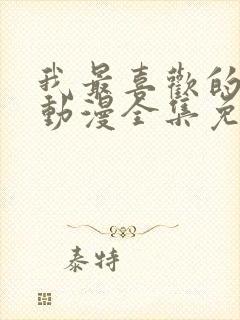 我最喜歡的
動漫全集免
泰特